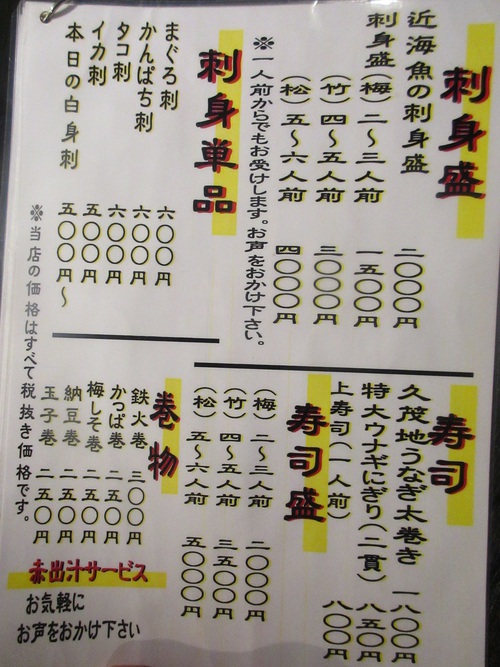 刺身盛
近海魚の刺身盛 二〇〇〇円
刺身盛(梅)二〜三人前 一五〇〇円
(竹)四〜五人前 三〇〇〇円
(松)五〜六人前 四〇〇〇円
※一人前からでもお受けします。お声をおかけ下さい。
刺身単品
まぐろ刺 六〇〇円
かんぱち刺 六〇〇円
タコ刺 六〇〇円
イカ刺 五〇〇円
本日の白身刺 五〇〇円〜
※当店の価格はすべて税抜き価格です。
寿司
久茂地うなぎ太巻き 一八〇〇円
特大ウナギにぎり(二貫) 八五〇円
上寿司(一人前) 八〇〇円
寿司盛
(梅)二〜三人前 二〇〇〇円
(竹)四〜五人前 三五〇〇円
(松)五〜六人前 五〇〇〇円
巻物
鉄火巻 三〇〇円
かっぱ巻 二五〇円
梅しそ巻 二五〇円
納豆巻 二五〇円
玉子巻 二五〇円
赤出汁サービス
お気軽に
お声をおかけ下さい